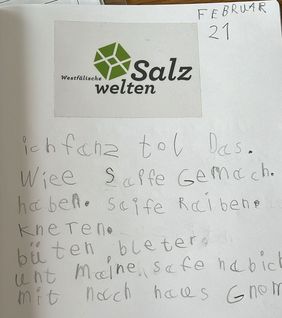 FEBRUAR
21
Westfälische Salz
welten
ich fanz tol Das.
Wiee Saffe Gemach.
haben. Saife Raiben.
Kneten.
büten bleter.
unt maine safe habich
mit nach haus Gnom